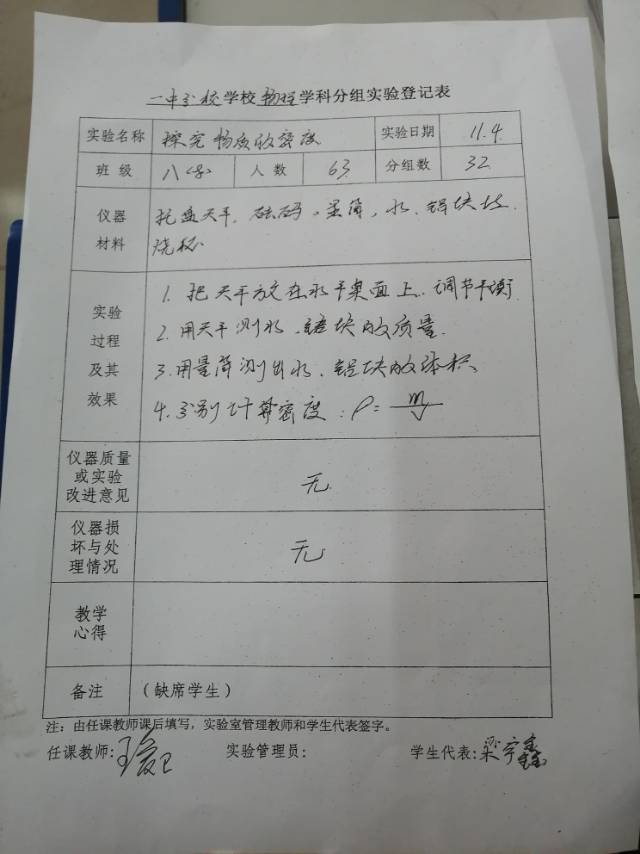 一中分校学校物理学科分组实验登记表
实验名称 探究物质的密度 实验日期 11.4
班级 八(8) 人数 63 分组数 32
仪器
材料
托盘天平,砝码,量筒,水,铝块
烧杯
实验
过程
及其
效果
1. 把天平放在水平桌面上,调节平衡
2.用天平测水,铝块的质量.
3.用量筒测出水、铝块的体积
4.分别计算密度:ρ=m/V
仪器质量
或实验
改进意见
无
仪器损
坏与处
理情况
无
教学
心得
备注 (缺席学生)
注:由任课教师课后填写,实验室管理教师和学生代表签字。
任课教师: 实验管理员: 学生代表:梁宇鑫